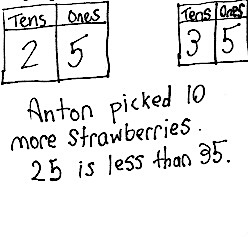 Tens Ones
2 5
Tens Ones
3 5
Anton picked 10
more strawberries.
25 is less than 35.